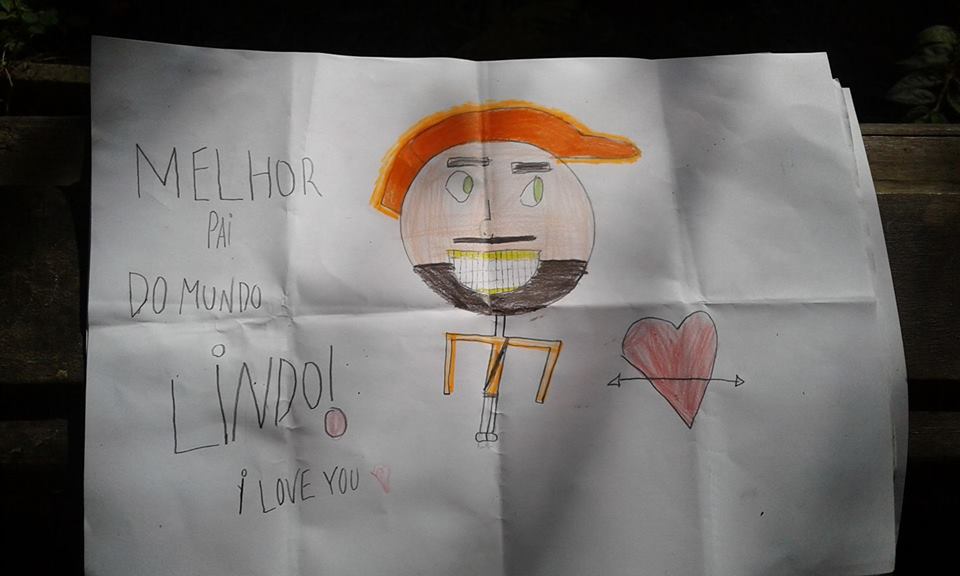 MELHOR
PAI
DO MUNDO
LINDO!
I LOVE YOU